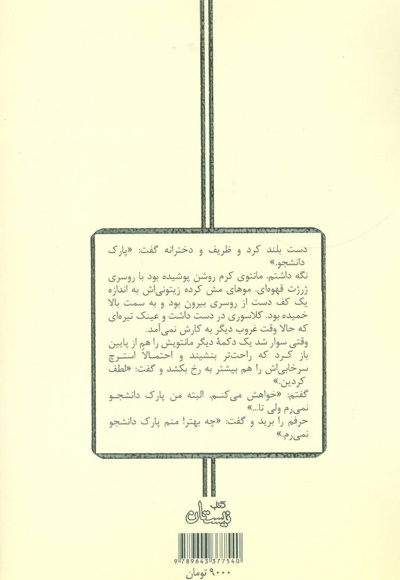 دست بلند کرد و ظریف و دخترانه گفت: «پارک
دانشجو.»
نگه داشتم. مانتوی کرم روشن پوشیده بود با روسری
ژرژت قهوه‌ای. موهای مش کرده زیتونی‌اش به اندازه
یک کف دست از روسری بیرون بود و به سمت بالا
خمیده بود. کلاسوری در دست داشت و عینک تیره‌ای
که حالا وقت غروب دیگر به کارش نمی‌آمد.
وقتی سوار شد یک دکمهٔ دیگر مانتویش را هم از پایین
باز کرد که راحت‌تر بنشیند و احتمالاً استرچ
سرخابی‌اش را هم بیشتر به رخ بکشد و گفت: «لطف
کردین.»
گفتم: «خواهش می‌کنم. البته من پارک دانشجو
نمی‌رم ولی تا...»
حرفم را برید و گفت: «چه بهتر! منم پارک دانشجو
نمی‌رم.»
کتاب
نیستان
9789643377540
۹۰۰۰ تومان